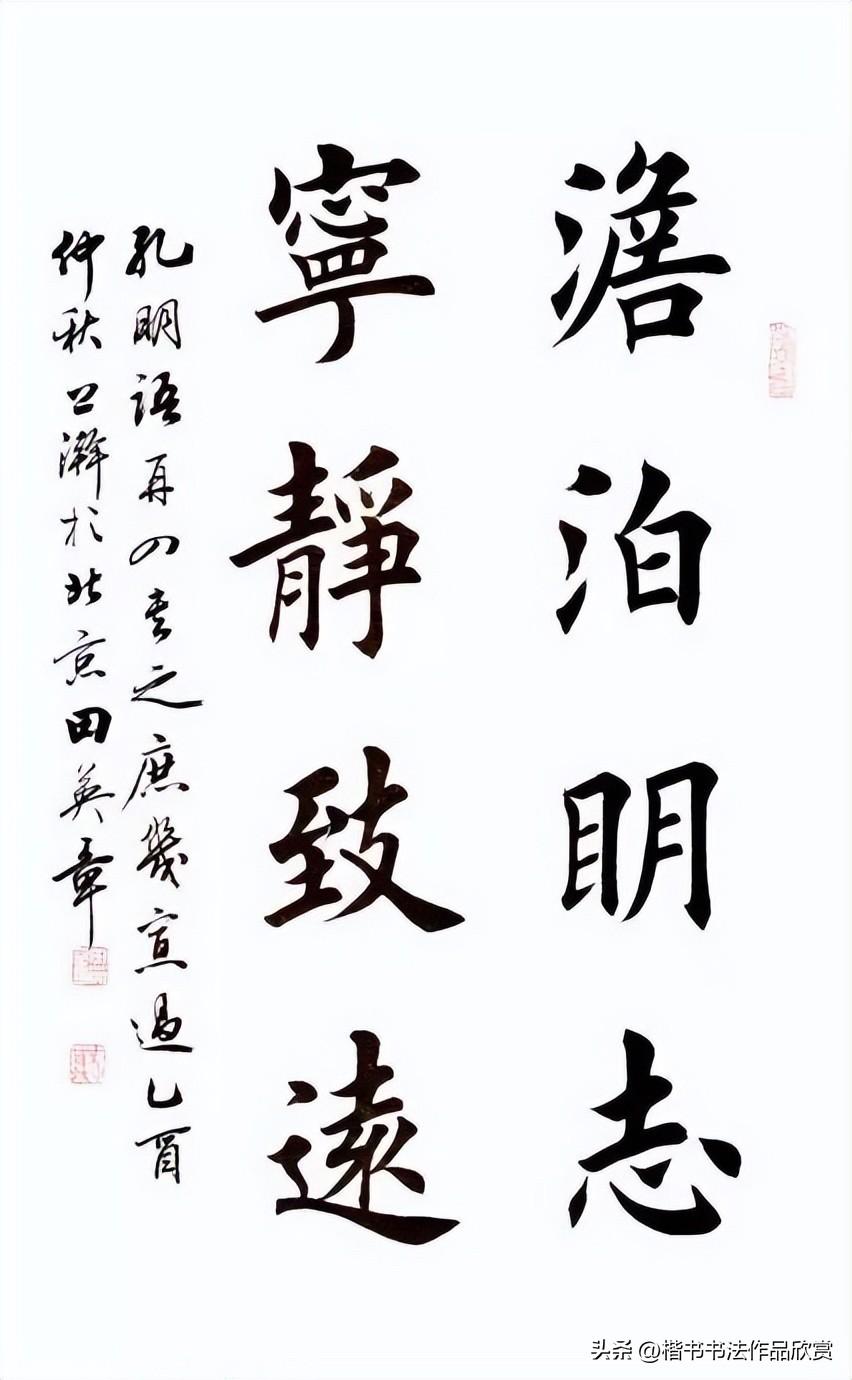 澹泊明志
寧靜致遠
孔明語再四書之庶幾寡過乙酉
仲秋上澣於北京田英章
头条 @楷书书法作品欣赏